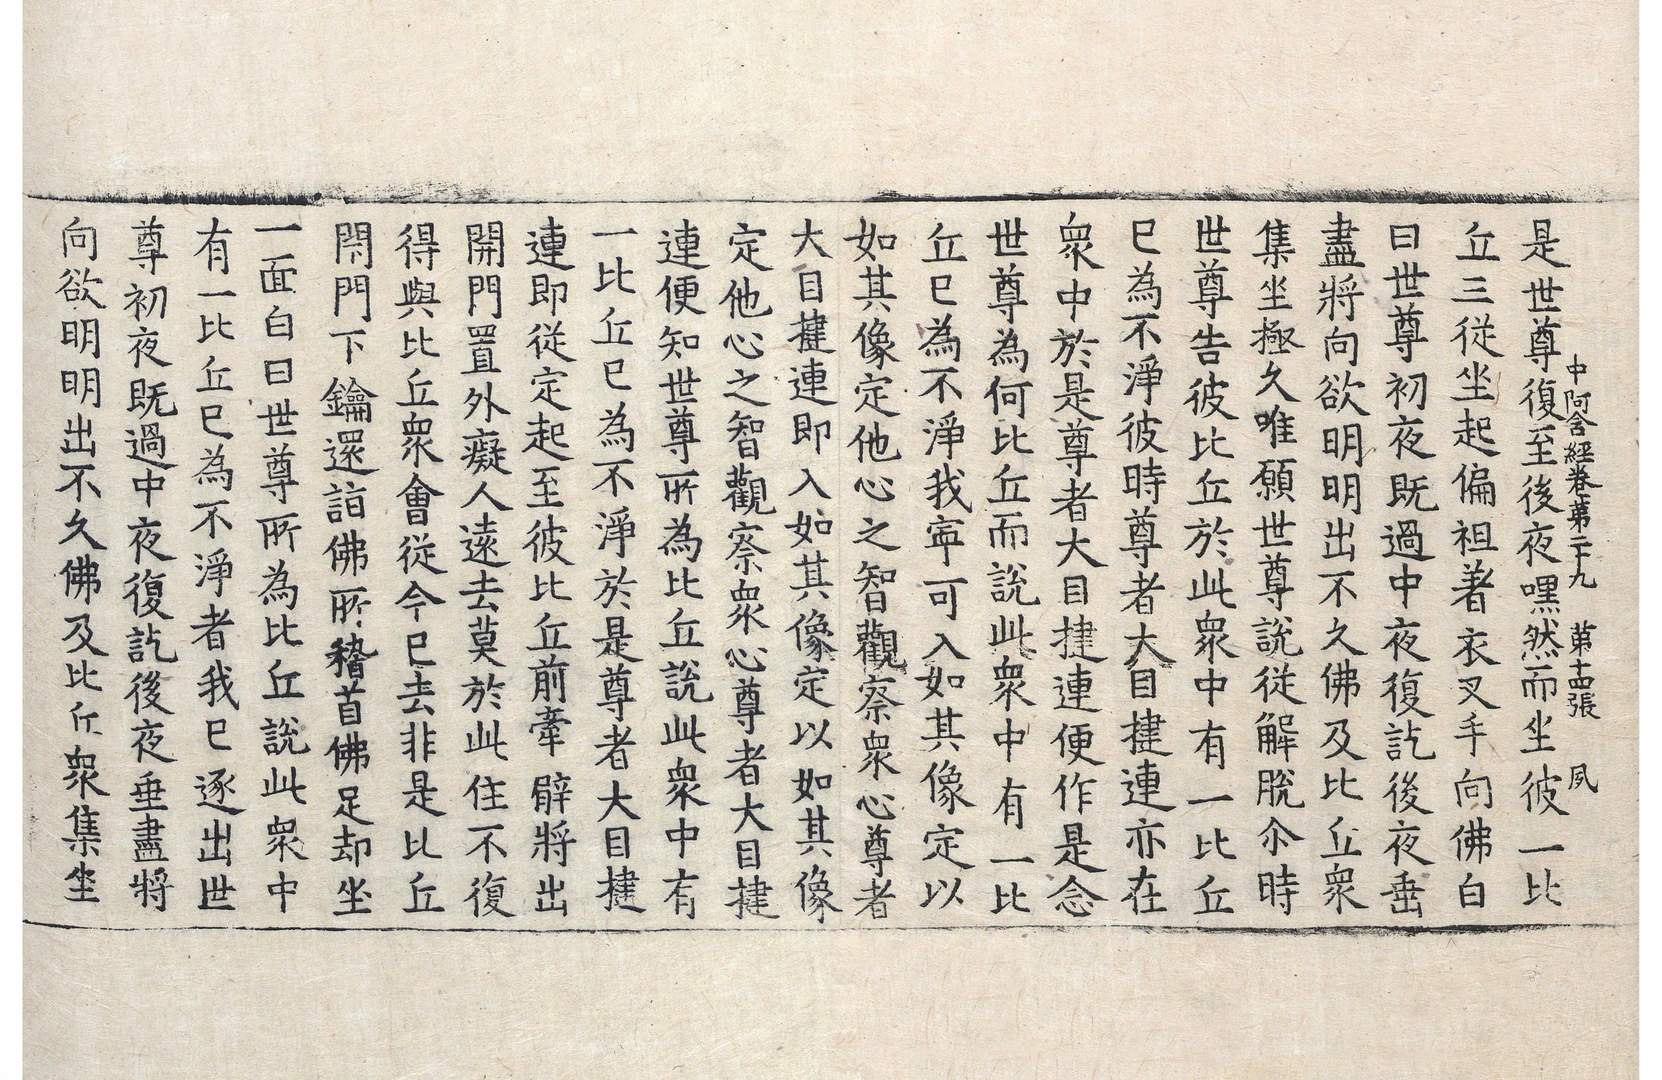 中阿含經卷第二十九　第十四張　夙
是世尊復至後夜嘿然而坐彼一比
丘三從坐起偏袒著衣叉手向佛白
曰世尊初夜既過中夜復訖後夜垂
盡將向欲明明出不久佛及比丘眾
集坐極久唯願世尊說從解脫尒時
世尊告彼比丘於此眾中有一比丘
已為不淨彼時尊者大目揵連亦在
眾中於是尊者大目揵連便作是念
世尊為何比丘而說此眾中有一比
丘已為不淨我寧可入如其像定以
如其像定他心之智觀察眾心尊者
大目揵連即入如其像定以如其像
定他心之智觀察眾心尊者大目揵
連便知世尊所為比丘說此眾中有
一比丘已為不淨於是尊者大目揵
連即從定起至彼比丘前牽臂將出
開門置外癡人遠去莫於此住不復
得與比丘眾會從今已去非是比丘
閇門下鑰還詣佛所稽首佛足却坐
一面白曰世尊所為比丘說此眾中
有一比丘已為不淨者我已逐出世
尊初夜既過中夜復訖後夜垂盡將
向欲明明出不久佛及比丘眾集坐